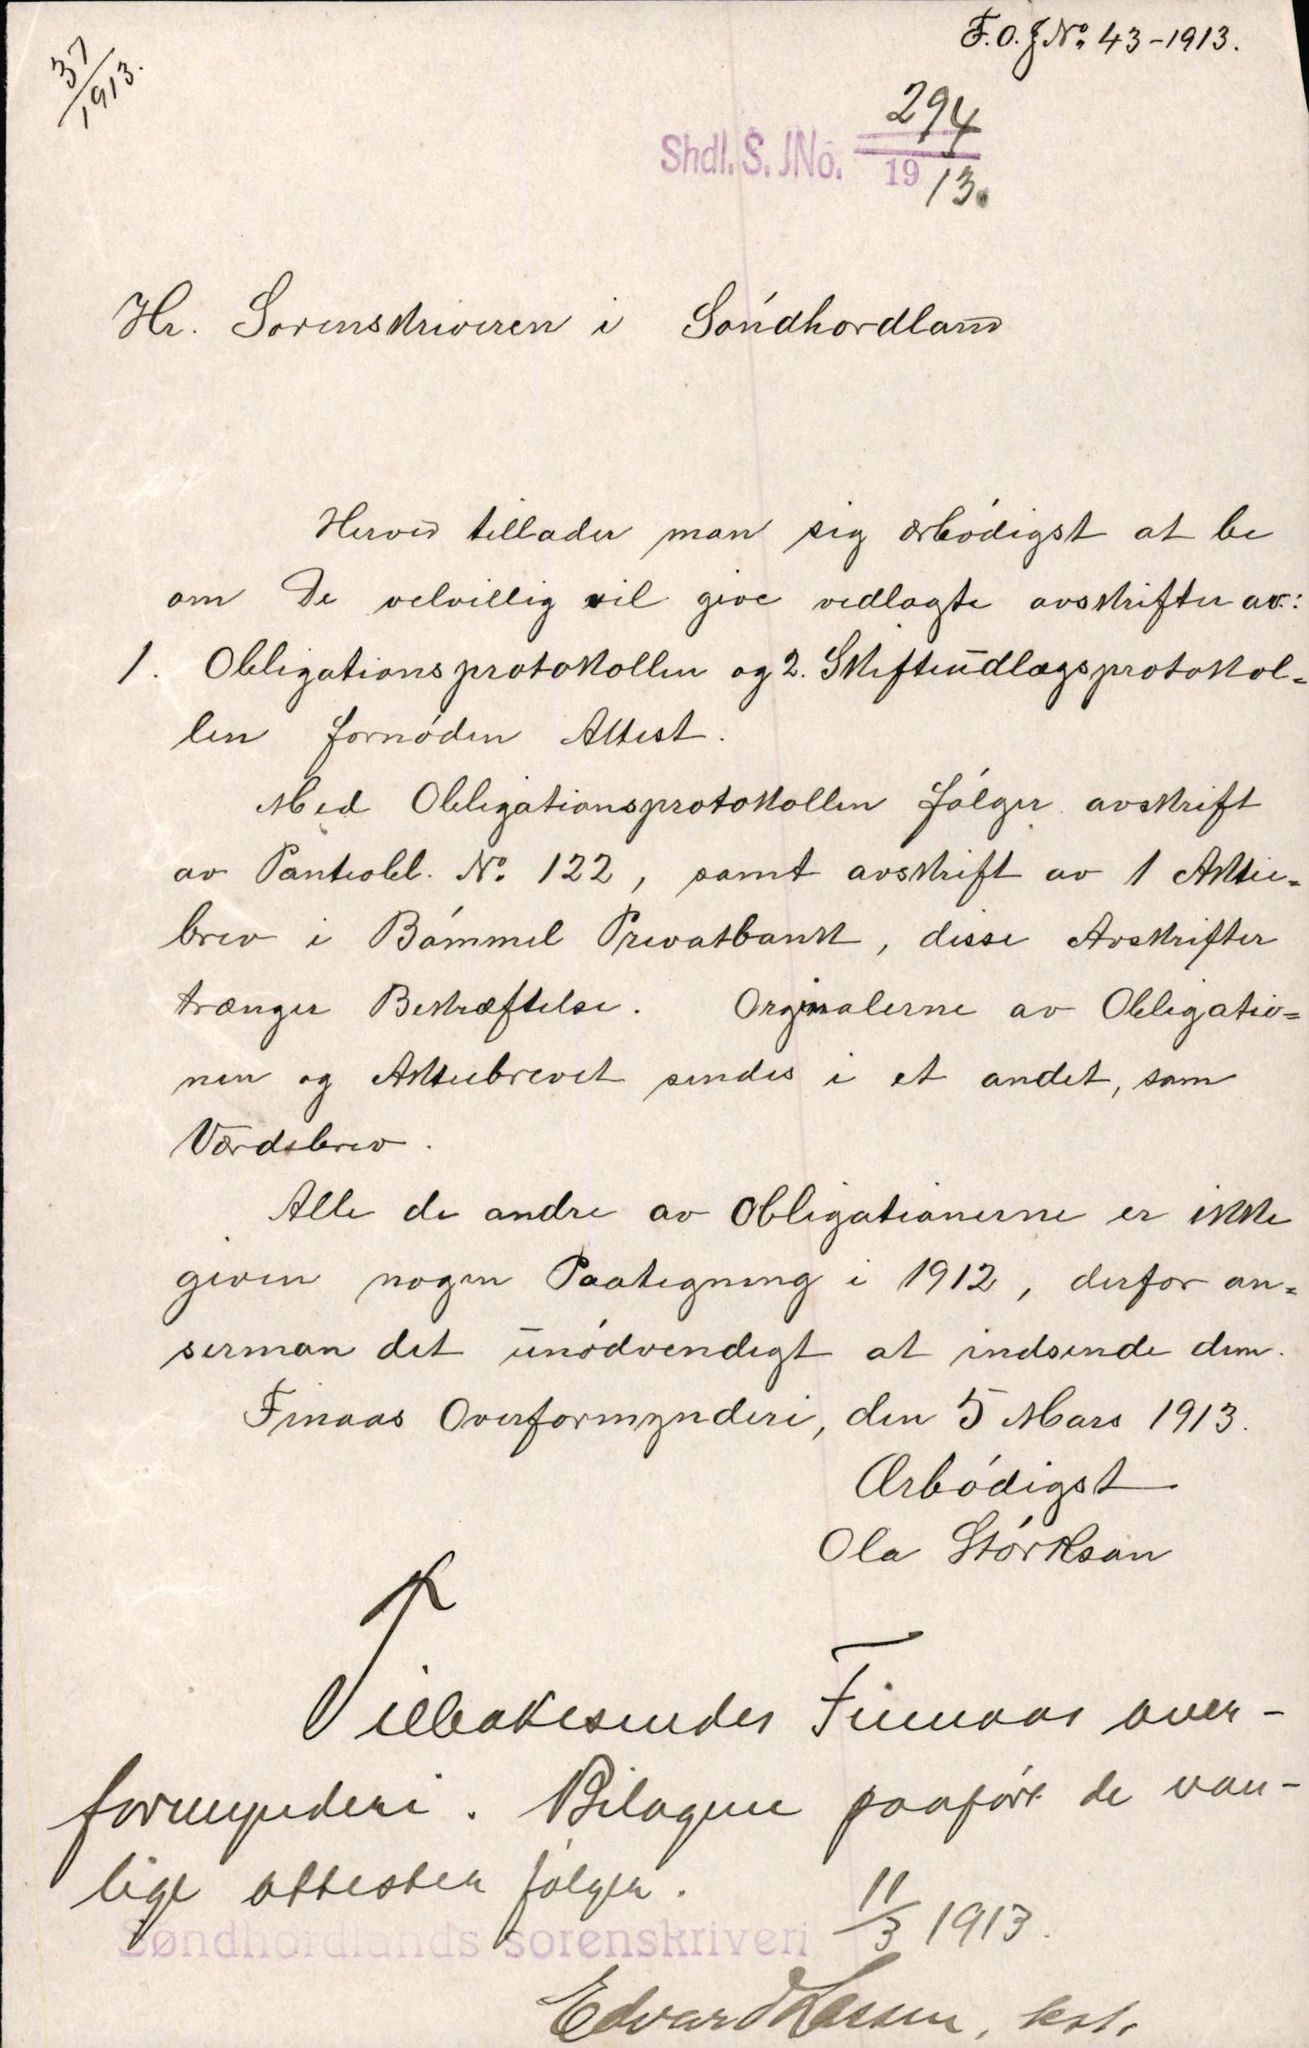 F.O.J.No. 43-1913.
37/1913.
Shdl. S. JNo. 294/1913.
Hr. Sorenskriveren i Söndhordland
Herved tillader man sig ærbödigst at be
om De velvillig vil give vedlagte avskrifter av:
1. Obligationsprotokollen og 2. Skifteudlægsprotokol=
len fornöden Attest.
Med Obligationsprotokollen fölger avskrift
av Panteobl. No. 122, samt avskrift av 1 Aktie=
brev i Bömmel Privatbank, disse Avskrifter
trænger Bekræftelse. Orginalerne av Obligatio=
nen og Aktiebrevet sendes i et andet, som
Værdsbrev.
Alle de andre av Obligationerne er ikke
given nogen Paategning i 1912, derfor an=
serman det unödvendigt at indsende dem.
Finaas Overformynderi, den 5 Mars 1913.
Ærbödigst
Ola Störkson
Tilbakesendes Finnaas over-
formynderi. Bilagene paaført de van-
lige attester følger.
Søndhordlands sorenskriveri 11/3 1913.
Edvard Larsen, kst.